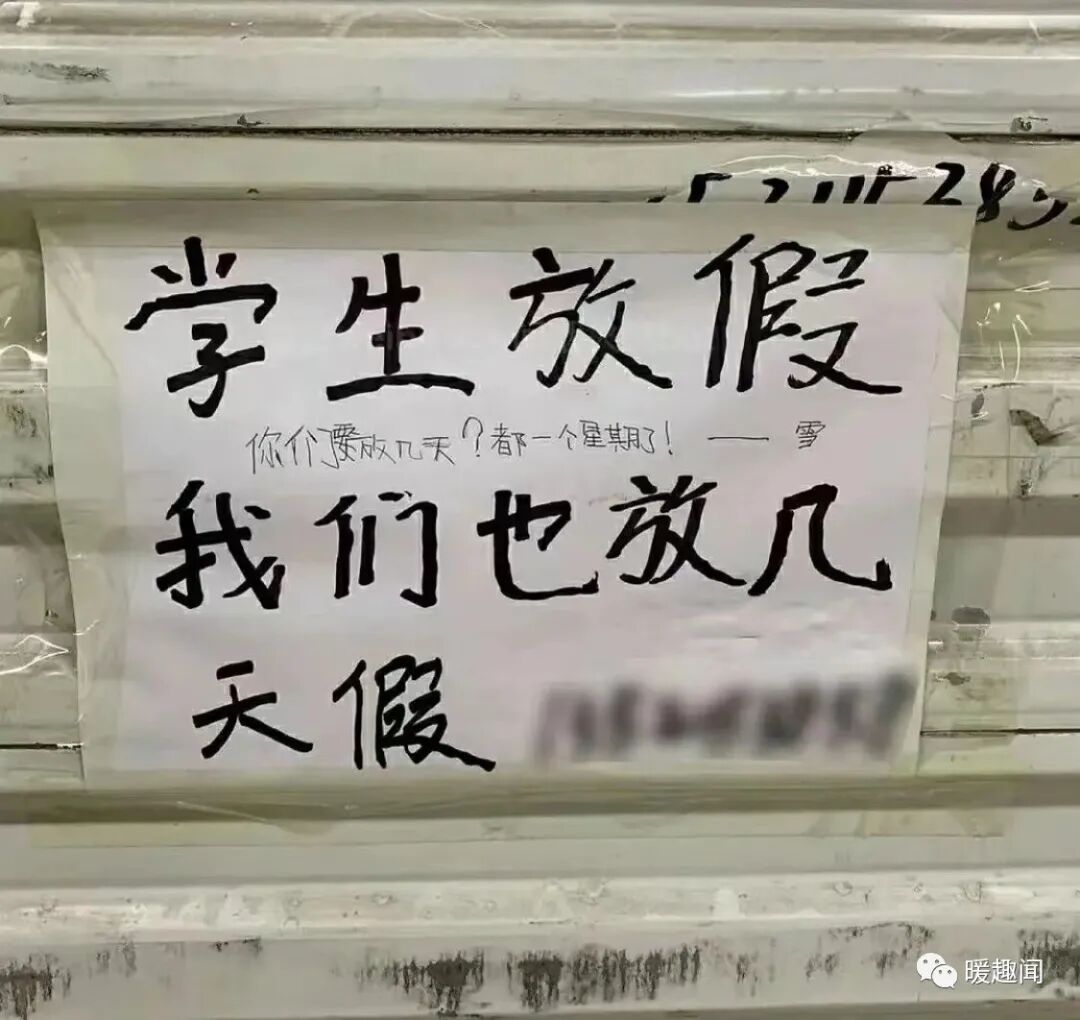 学生放假
你们要放几天？都一个星期了！ —— 雪
我们也放几
天假
暖趣闻